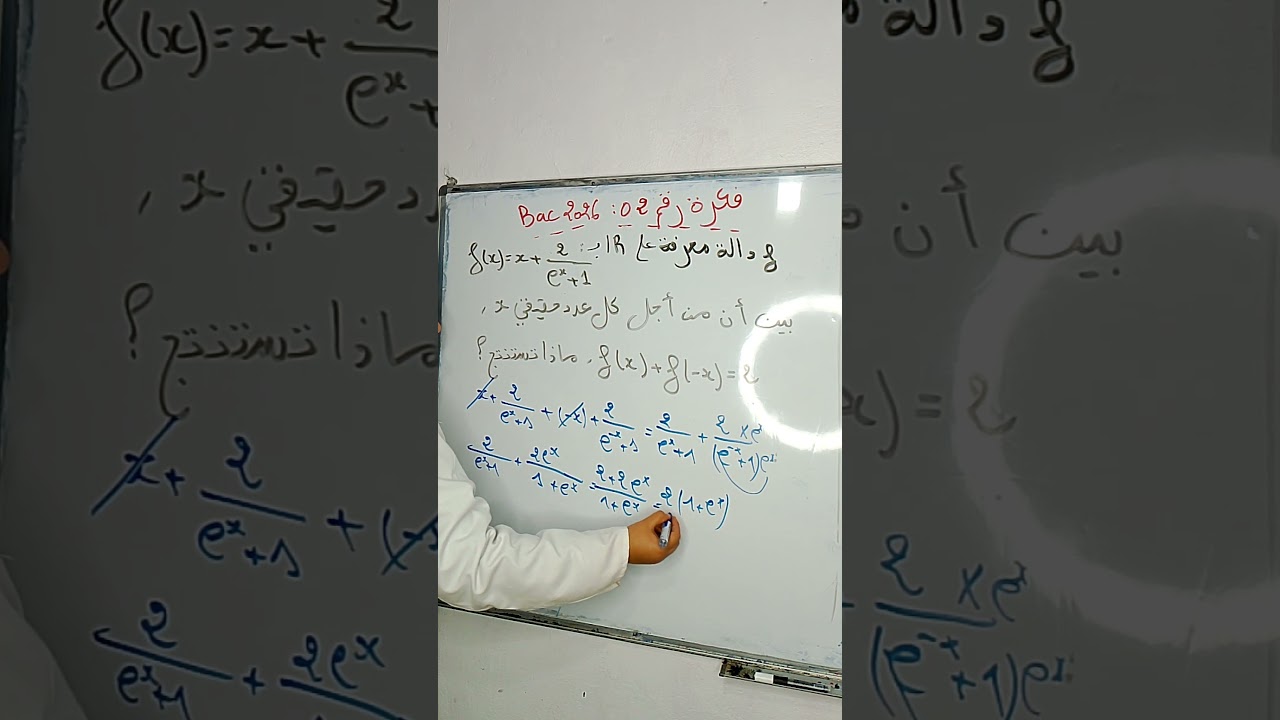 فكرة رقم 02: Bac 2026
f دالة معرفة على IR بـ: f(x)=x+\frac{2}{e^x+1}
بين أن من أجل كل عدد حقيقي x،
f(x)+f(-x)=2، ماذا تستنتج؟
x+\frac{2}{e^x+1}+(-x)+\frac{2}{e^{-x}+1}=\frac{2}{e^x+1}+\frac{2×e^x}{(e^{-x}+1)e^x}
\frac{2}{e^x+1}+\frac{2e^x}{1+e^x}=\frac{2+2e^x}{1+e^x}=2(1+e^x)